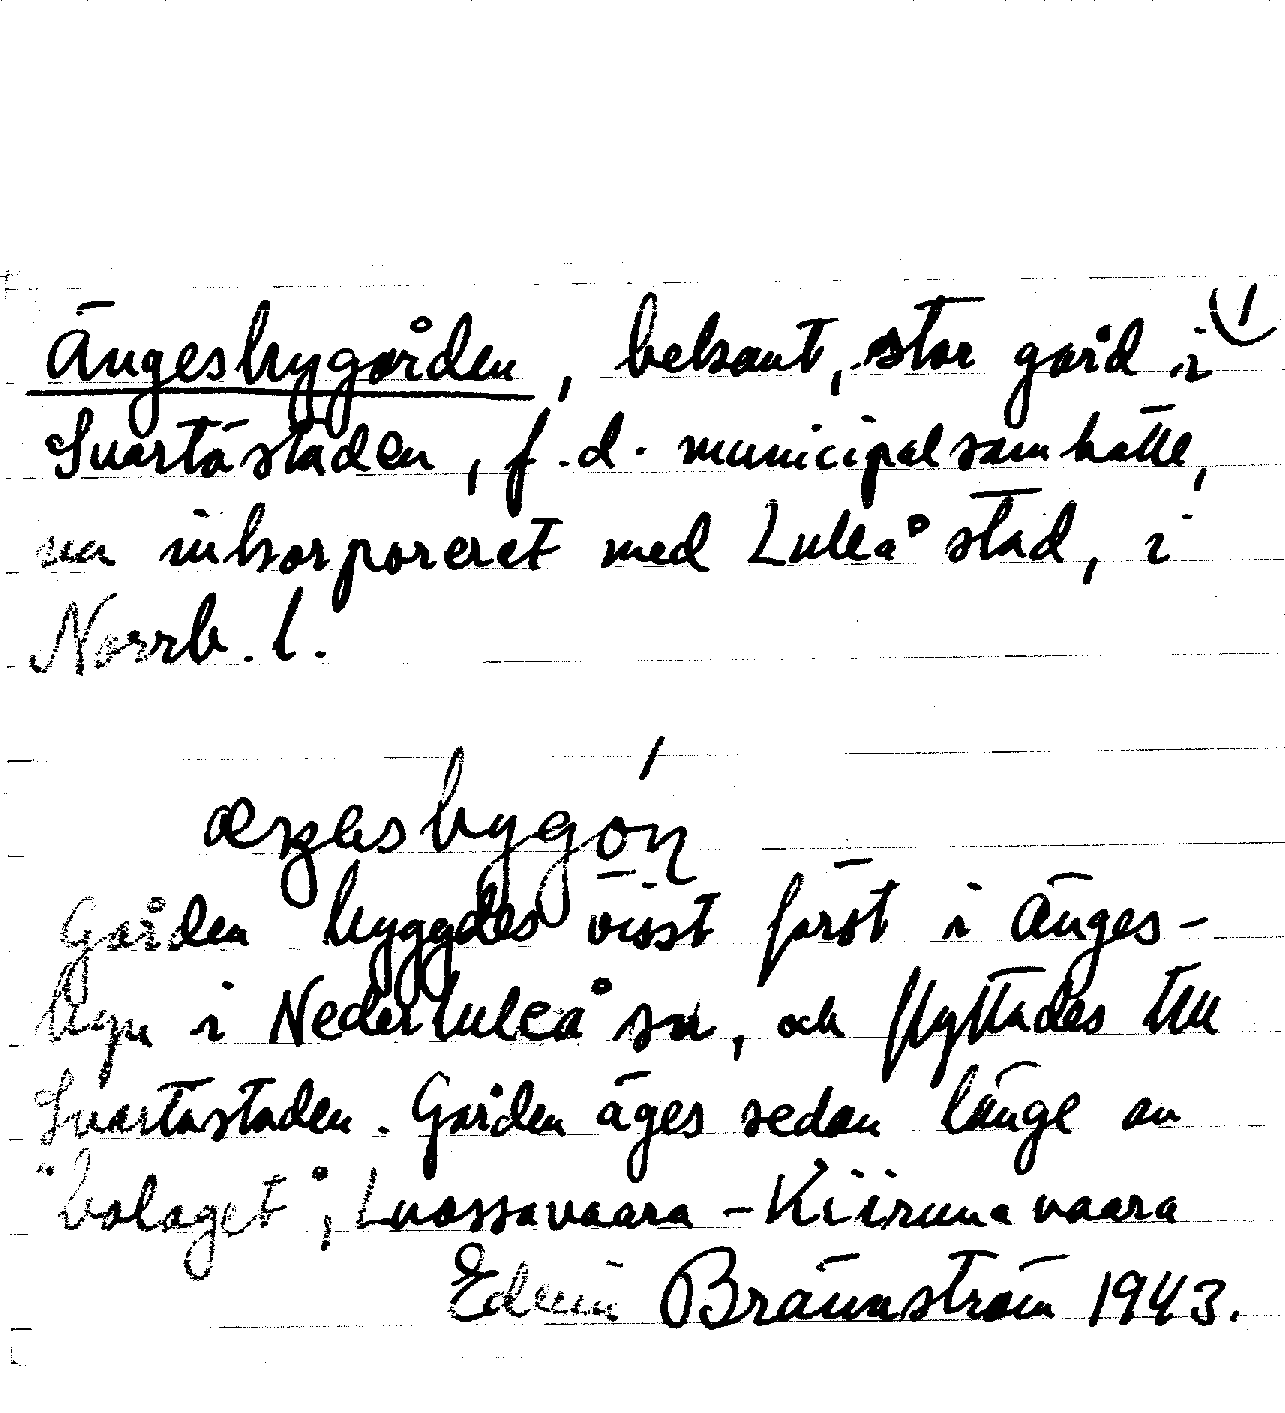 Ängesbygården, bekant, stor gård i
Svartöstaden, f.d. municipalsamhälle,
nu inkorporeret med Luleå stad, i
Norrb. l.
æŋesbygón
Gården byggdes visst först i Änges-
byn i Nederluleå sn, och flyttades till
Svartöstaden. Gården äges sedan länge av
"bolaget", Luossavaara - Kiirunavaara
Edvin Brännström 1943.